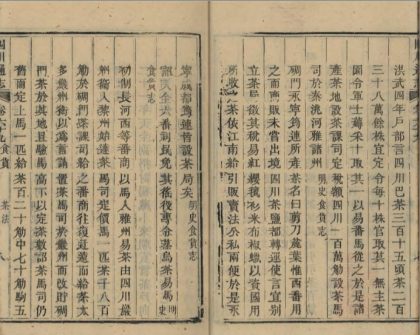 洪武四年戶部言四川巴茶三百十五頃茶二百
三十八萬餘株宜定令每十株官取其一無主茶
園令軍士薅采十取其八以易番馬從之於是諸
產茶地設茶課司定稅額四川一百萬觔設茶馬
司於秦洮河雅諸州 明史食貨志
碉門永寧筠連所產茶名曰剪刀麄葉惟西番用
之而商販未嘗出境四川茶鹽都轉運使言宜別
立茶局徵其稅易紅纓氊衫米布椒蠟以資國用
所收之茶依江南給引販賣法公私兩便於是永
寧成都筠連皆設茶局矣 明史食貨志
詔天全六番司民免其徭役專令蒸烏茶易馬 明史
食貨志
初制長河西等番商以馬入雅州易茶由四川巖
州衛入黎州始達茶馬司定價馬一匹茶千八百
觔於碉門茶課司給之番商往復迂遠而給茶太
多巖州衛以為言請置茶馬司於巖州而改貯碉
門茶於其地且驗馬高下以定茶數詔茶馬司仍
舊而定上馬一匹給茶百二十觔中七十觔駒五
四川通志 食貨 茶法